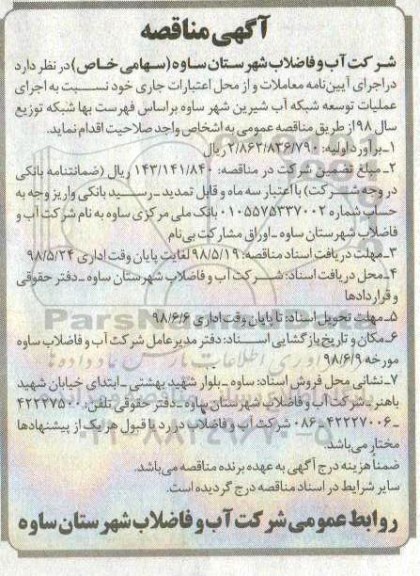 آگهی مناقصه
شرکت آب و فاضلاب شهرستان ساوه (سهامی خاص) در نظر دارد
در اجرای آیین نامه معاملات و از محل اعتبارات جاری خود نسبت به اجرای
عملیات توسعه شبکه آب شیرین شهر ساوه براساس فهرست بها شبکه توزیع
سال ۹۸ از طریق مناقصه عمومی به اشخاص واجد صلاحیت اقدام نماید.
۱_برآورد اولیه: ۲/۸۶۳/۸۳۶/۷۹۰ ریال
۲_ مبلغ تضمین شرکت در مناقصه: ۱۴۳/۱۴۱/۸۴۰ ریال (ضمانتنامه بانکی
در وجه شرکت) با اعتبار سه ماه و قابل تمدید _ رسید بانکی واریز وجه به
حساب شماره ۰۱۰۵۵۷۵۳۳۷۰۰۲ بانک ملی مرکزی ساوه به نام شرکت آب و
فاضلاب شهرستان ساوه _ اوراق مشارکت بی‌نام
۳_مهلت دریافت اسناد مناقصه: ۹۸/۵/۱۹ لغایت پایان وقت اداری ۹۸/۵/۲۴
۴_محل دریافت اسناد: شرکت آب و فاضلاب شهرستان ساوه _ دفتر حقوقی
و قراردادها
۵_مهلت تحویل اسناد: تا پایان وقت اداری ۹۸/۶/۶
۶_مکان و تاریخ بازگشایی اسناد: دفتر مدیر عامل شرکت آب و فاضلاب ساوه
مورخه ۹۸/۶/۹
۷_نشانی محل فروش اسناد: ساوه _ بلوار شهید بهشتی _ ابتدای خیابان شهید
باهنر _ شرکت آب و فاضلاب شهرستان ساوه _ دفتر حقوقی تلفن: ۴۲۲۲۷۵۰۰
_ ۴۲۲۲۷۰۰۶-۰۸۶ شرکت آب و فاضلاب در رد یا قبول هر یک از پیشنهادها
مختار می‌باشد.
ضمناً هزینه درج آگهی به عهده برنده مناقصه می‌باشد.
سایر شرایط در اسناد مناقصه درج گردیده است.
روابط عمومی شرکت آب و فاضلاب شهرستان ساوه